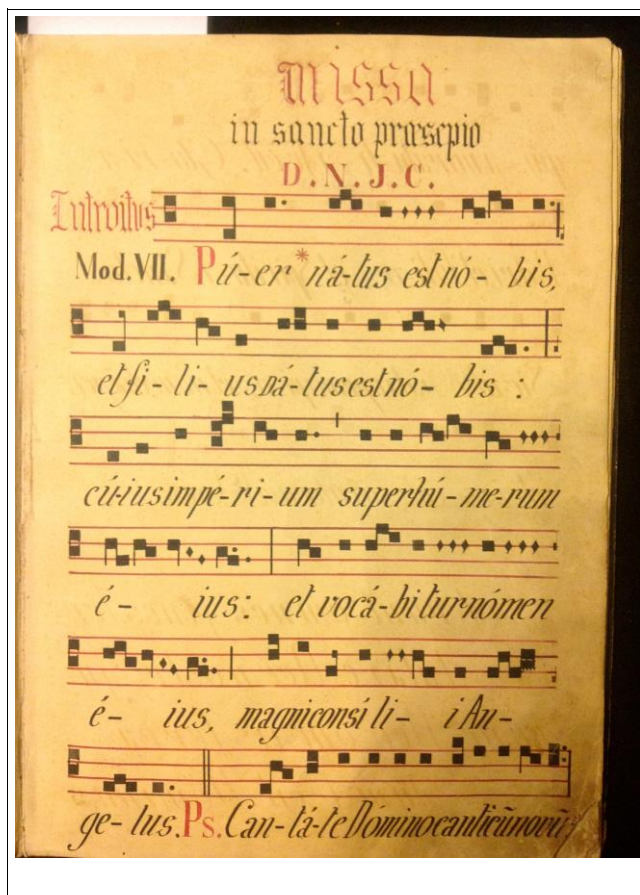 Missa
in sancto præsepio
D. N. J. C.
Introitus
Mod. VII. Pú-er * ná-tus est nó- bis,
et fi- li- us dá-tus est nó- bis :
cú-ius impé-ri- um super hú- me-rum
é- ius: et vocá-bitur nómen
é- ius, magni consíli- i An-
ge-lus. Ps. Can-tá-te Dómino canticũ novũ: